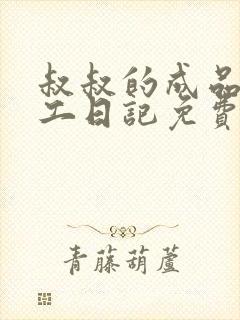 叔叔的成品
工日記免費
青藤葫蘆